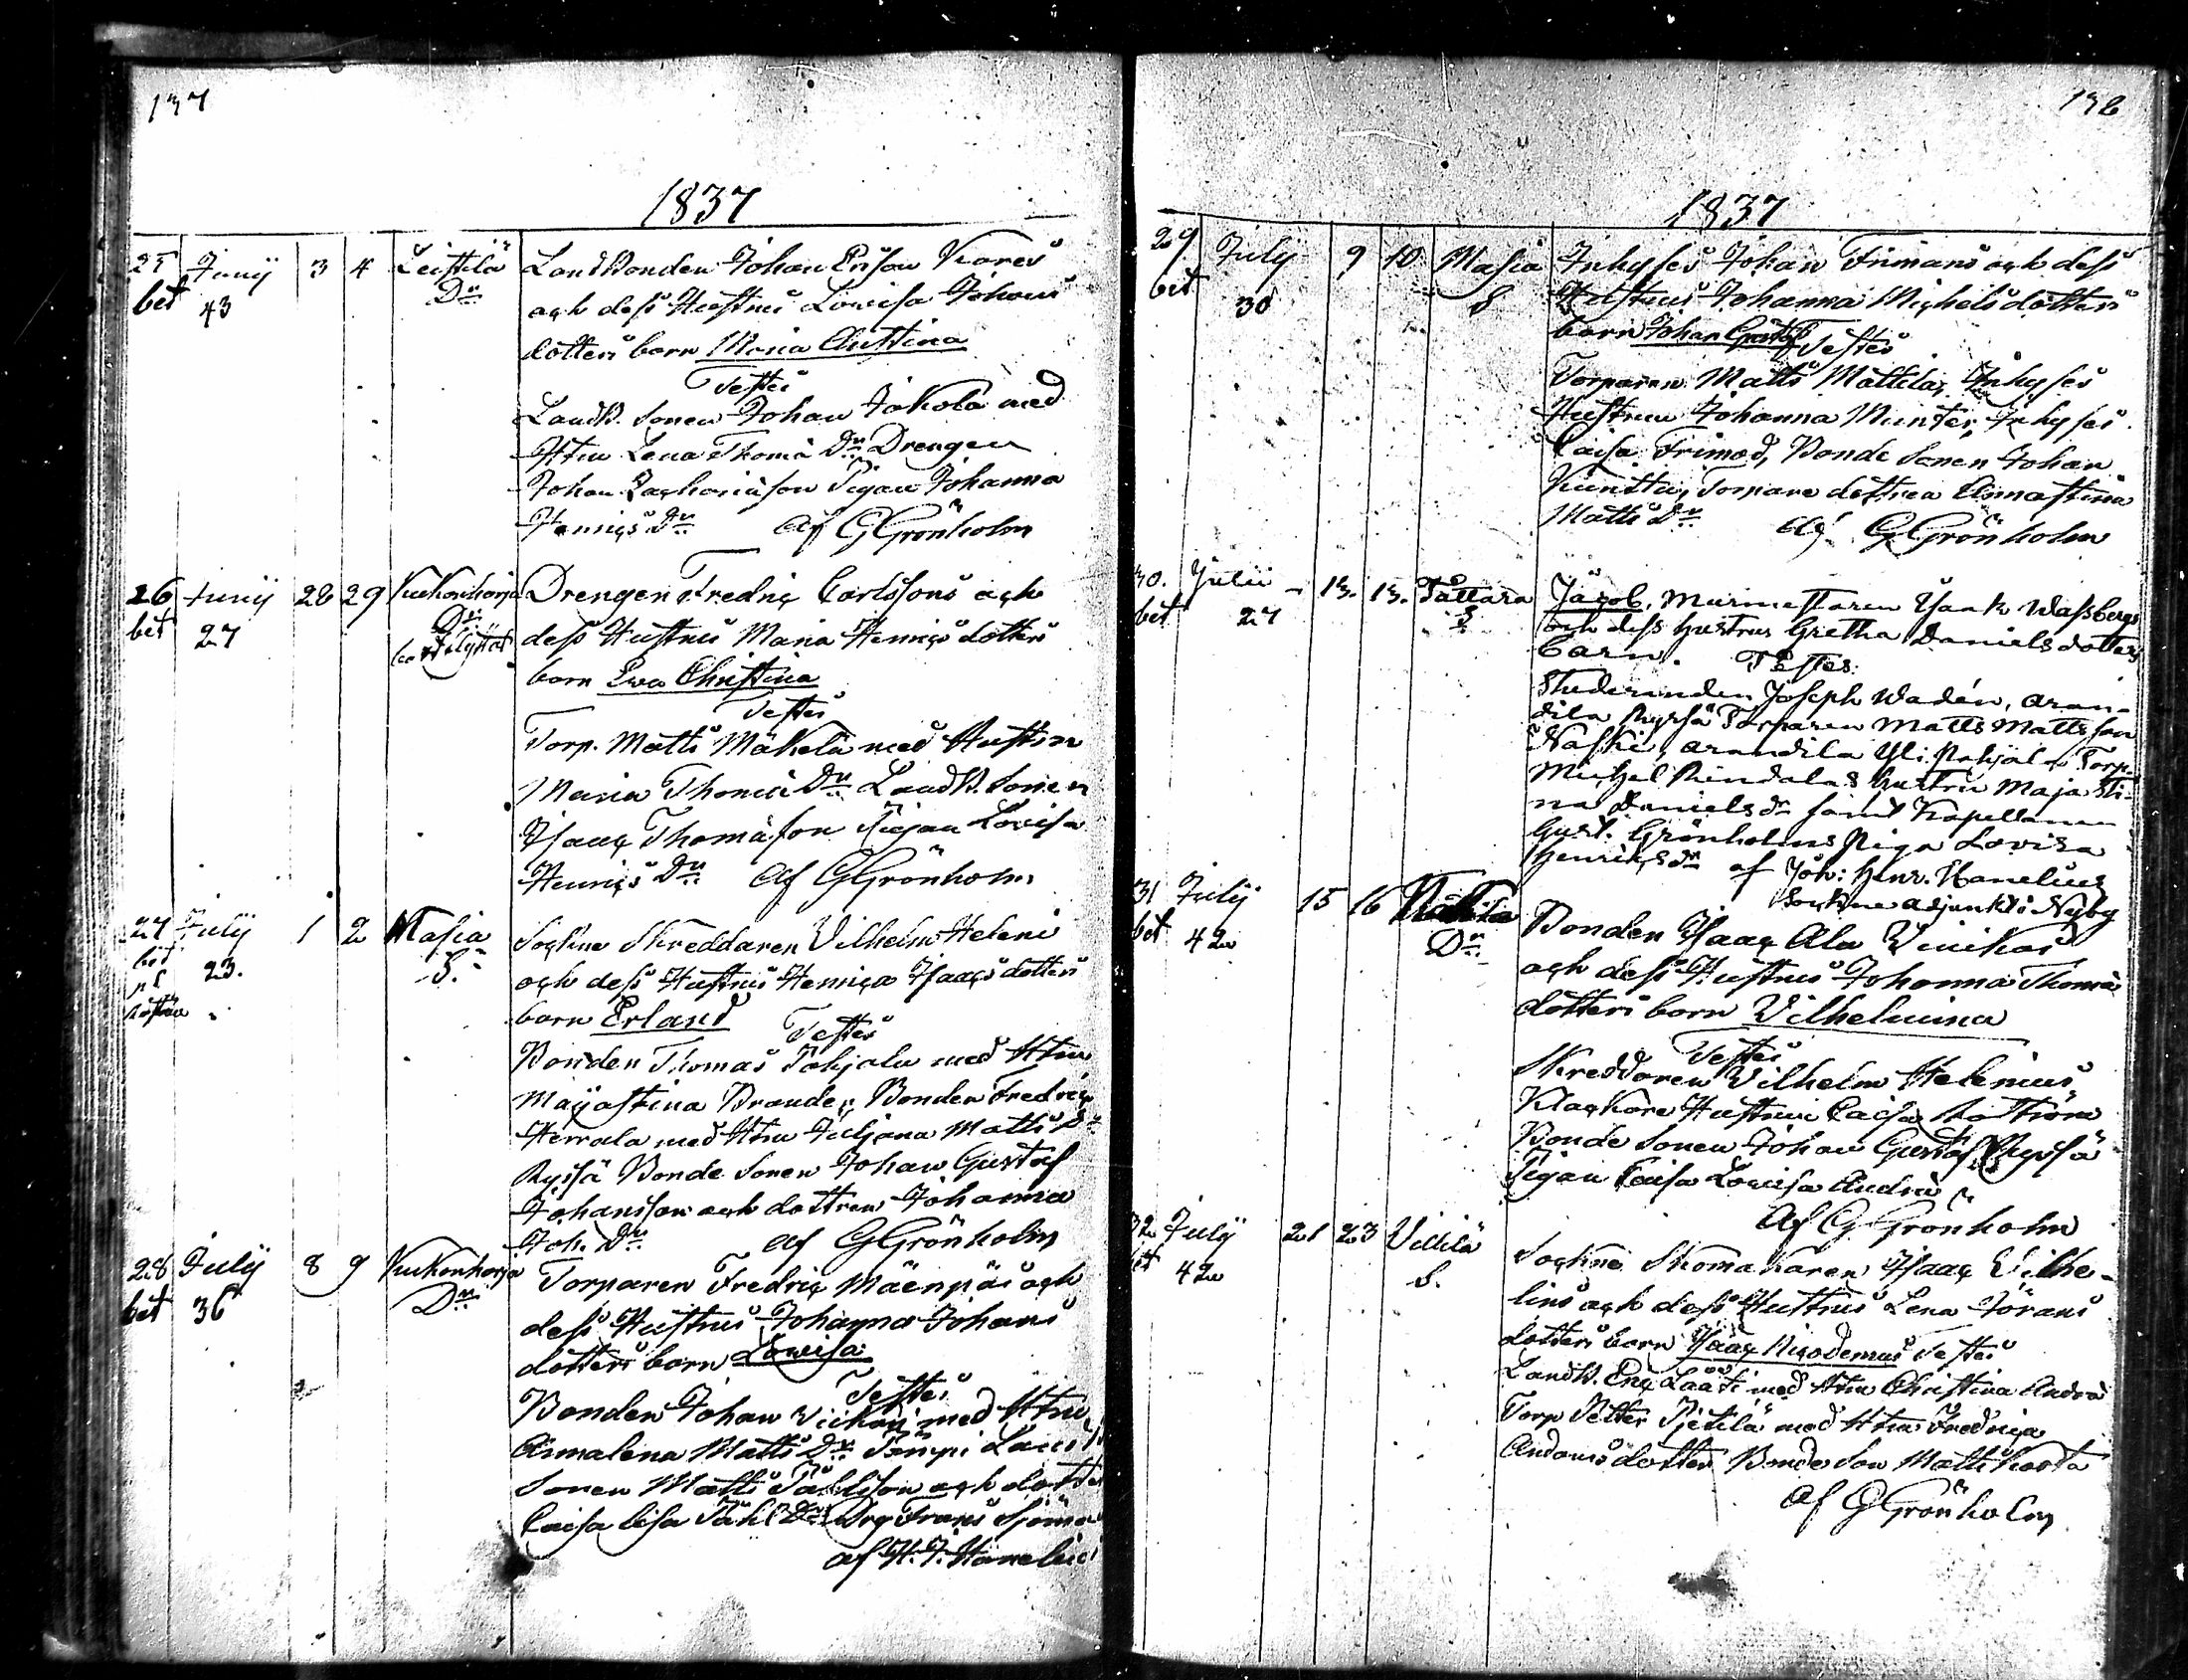 137
1837
25 Junij 3 4 Leistilä LandBonden Johan Ersson Kares
bet 43 Dr och dess Hustrus Lowisa Johans
dotters barn Maria Christina
Testes
LandB. Sonen Johan Jakola med
Htru Lena Thomä Dr Drengen
Johan Zachariäson Pigan Johanna
Henrics Dr Af GGrönholm
26 Junij 28 29 Kuckonharja Drengen Fredric Carlssons och
bet 27 Dr dess Hustrus Maria Henrics dotters
barn Ewa Christina
Testes
Torp. Matts Mäkelä med Hustrun
Maria Thomä Dr LandB. Sonen
Isaac Thomäson Pigan Lovisa
Henrics Dr Af GGrönholm
27 July 1 2 Masia Sockne Skreddaren Vilhelm Heleni
bet 23. S. och dess Hustrus Henrica Isaacs dotters
barn Erland Testes
Bonden Thomas Pohjala med Htru
Majastina Brander, Bonden Fredric
Herrala med Htru Juliana Matts Dr
Ryssä Bonde Sonen Johan Gustaf
Johansson och dottren Johanna
Joh. Dr af GGrönholm
28 July 8 9 Kuckonharja Torparen Fredric Mäenpäs och
bet 36 Dr dess Hustrus Johanna Johans
dotters barn Lowisa
Testes
Bonden Johan Vickari med Htru
Annalena Matts Dr Tempi LandB
Sonen Matts Påhlsson och dotter
Caisa Lisa Påhls Dr Drg Frans Sjöman
af H. J. Hanelius
138
1837
29 July 9 10 Masia Inhyses Johan Frimans och dess
bet 30 S Hustrus Johanna Michelsdotters
barn Johan Gustaf Testes
Torparen Matts Mattila, Inhyses
Hustrun Johanna Munter, Inhyses
Caisa Frimad, Bonde Sonen Johan
Torpare dottren Annastina
Matts Dr Af GGrönholm
30. Julii 13. 13. Tåttara Jacob, Murmestaren Isaak Wassbergs
bet 27 S och dess hustrus Gretha Danielsdotters
barn. Testes:
Studeranden Joseph Wadén, Aran-
dila Ryssä Torparen Matts Mattsson
Naski, Arandila Yli Pohjala Torp.
Michel Rindalas hustru Maja Sti-
na Daniels dr samt Kapellanen
Gust. Grönholms Piga Lovisa
Henrics dr af Joh: Henr. Hanelius
Sockne adjunkt i Nyby
31 July 15 16 Bonden Isaac Ala Winikas
bet 42 Dr. och dess Hustrus Johanna Thomä
dotters barn Vilhelmina
Testes
Skreddaren Vilhelm Helenius
Klockare Hustrun Caisa
Bonde Sonen Johan Gustaf Ryssä
Pigan Caisa Lowisa Andrä
Af GGrönholm
32 July 21 23 Villilä Sockne Skomakaren Isaac Vilhe-
bet 42 S. lins och dess Hustrus Lena Jörans
dotters barn Isaac Nicodemus Testes
LandB. Eric Lååti med Htru Christina Andrä
Torp Petter Pjetilä med Htru Fredrica
Andersdotter Bonde Son Matts
Af GGrönholm